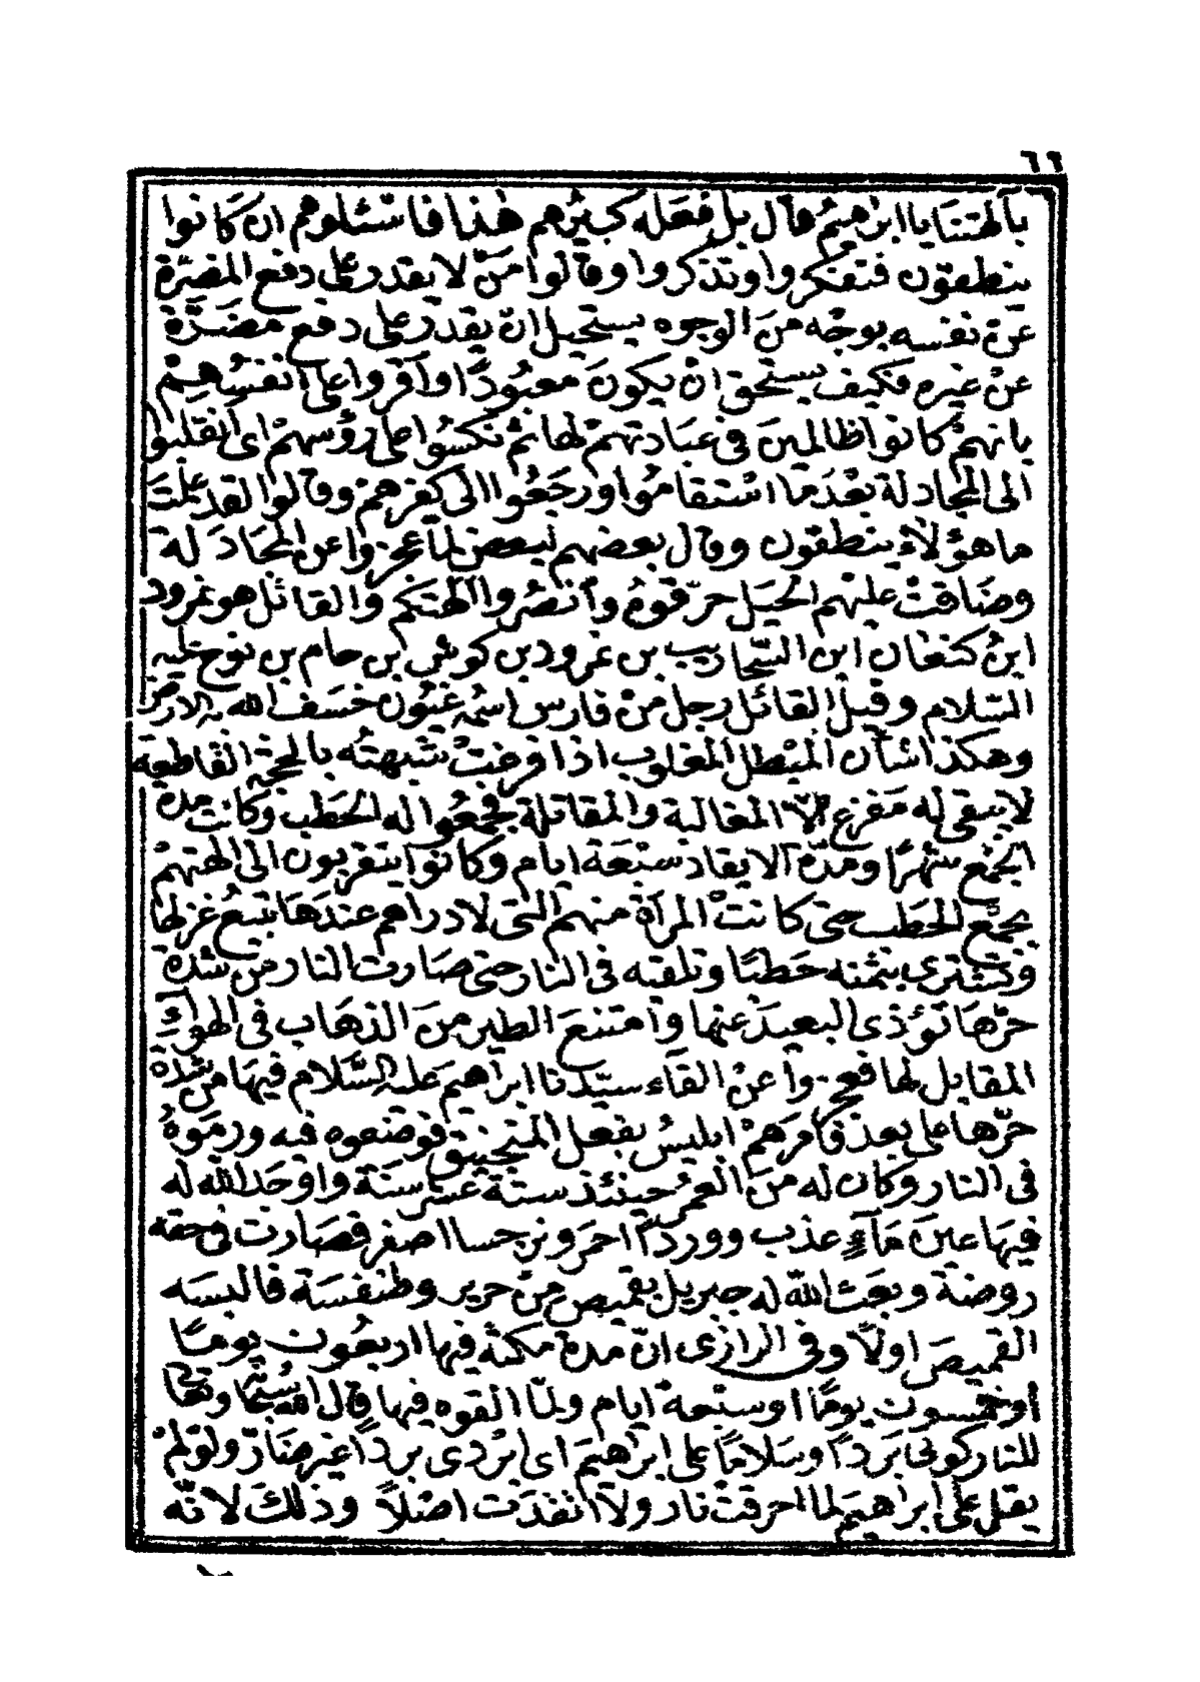 ٦٦
بآلهتنا يا ابراهيم قال بل فعله كبيرهم هذا فاسئلوهم ان كانوا
ينطقون فتفكروا وتذكروا وقالوا من لا يقدر على دفع المضرة
عن نفسه بوجه من الوجوه يستحيل ان يقدر على دفع مضرة
عن غيره فكيف يستحق ان يكون معبودا واقروا على انفسهم
بانهم كانوا ظالمين فى عبادتهم لها ثم نكسوا على رؤسهم اى انقلبوا
الى المجادلة بعد ما استقاموا ورجعوا الى كفرهم وقالوا لقد علمت
ما هؤلاء ينطقون وقال بعضهم لبعض لما عجزوا عن المحادلة
وضاقت عليهم الحيل حرّقوه وانصروا الهتكم والقائل هو نمرود
ابن كنعان ابن السنحاريب بن نمرود بن كوش بن حام بن نوح عليه
السلام وقيل القائل رجل من فارس اسمه غيون خسف الله به الارض
وهكذا شأن المبطل المغلوب اذا قرعت شبهته بالحجة القاطعة
لا يبقى له مفزع الا المغالبة والمقاتلة فجمعوا له الحطب وكانت مدة
الجمع شهرا ومدة الايقاد سبعة ايام وكانوا يتقربون الى الهتهم
بجمع الحطب حتى كانت المرأة منهم التى لا دراهم عندها تبيع غزلها
وتشترى بثمنه حطبا وتلقيه فى النار حتى صارت النار من شدة
حرها تؤذى البعيد عنها وامتنع الطير من الذهاب فى الهواء
المقابل لها فعجزوا عن القاء سيدنا ابراهيم عليه السلام فيها من شدة
حرّها على بعد فأمرهم ابليس بفعل المنجنيق فوضعوه فيه ورموه
فى النار وكان له من العمر حينئذ ستة عشر سنة واوجد الله له
فيها عين ماء عذب ووردا احمر ونرجسا اصفر فصارت فى حقه
روضة وبعث الله له جبريل بقميص من حرير وطنفسة فالبسه
القميص اولا وفى الرازى ان مدة مكثه فيها اربعون يوما
او خمسون يوما او سبعة ايام ولما القوه فيها قال الله سبحانه وتعالى
للنار كونى بردا وسلاما على ابراهيم اى ابردى بردا غير ضار ولو لم
يقل على ابراهيم لما احرقت نار ولا اتقدت اصلا وذلك لانه